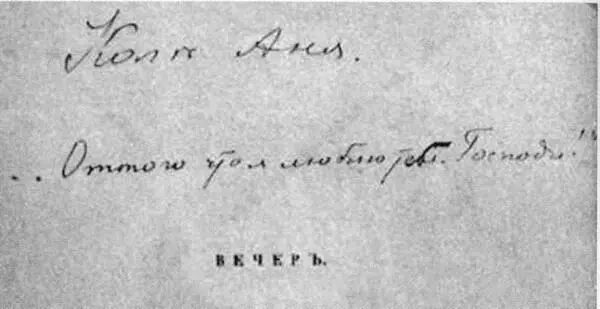 Коля Аня.
.. Оттого что я люблю тебя. Господи!"
ВЕЧЕРЪ.